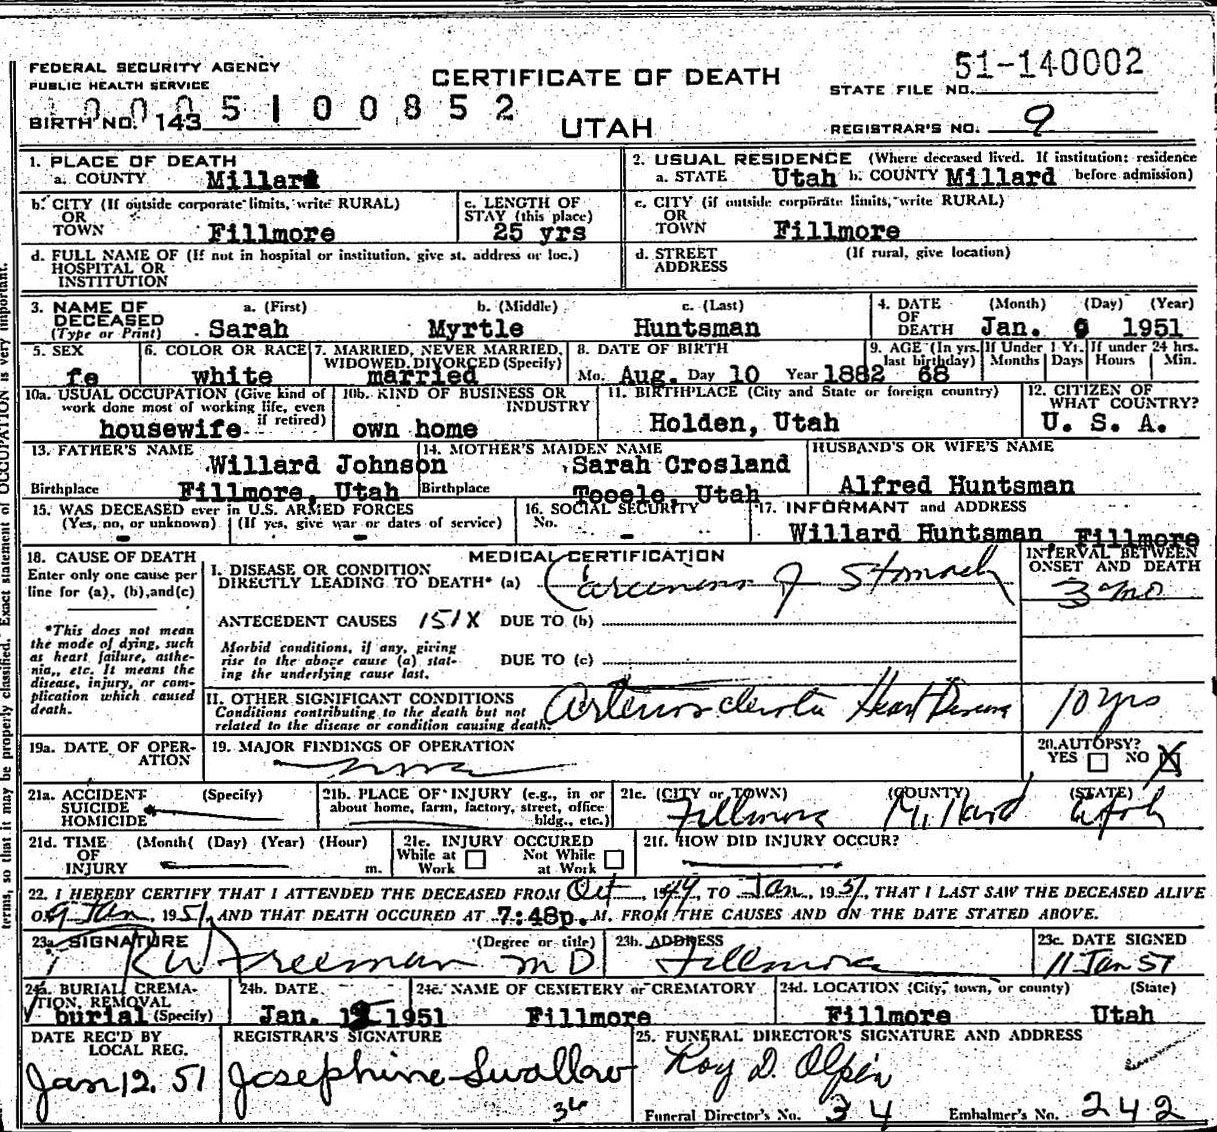 FEDERAL SECURITY AGENCY
PUBLIC HEALTH SERVICE
CERTIFICATE OF DEATH
51-140002
STATE FILE NO.
0005100852
BIRTH NO. 143
UTAH
REGISTRAR'S NO. 9
1. PLACE OF DEATH
a. COUNTY Millard
2. USUAL RESIDENCE (Where deceased lived. If institution: residence before admission)
a. STATE Utah b. COUNTY Millard
b. CITY (If outside corporate limits, write RURAL)
OR
TOWN Fillmore
c. LENGTH OF
STAY (this place)
25 yrs
c. CITY (if outside corporate limits, write RURAL)
OR
TOWN Fillmore
d. FULL NAME OF (If not in hospital or institution, give st. address or loc.)
HOSPITAL OR
INSTITUTION
d. STREET (If rural, give location)
ADDRESS
3. NAME OF
DECEASED
(Type or Print)
a. (First) b. (Middle) c. (Last)
Sarah Myrtle Huntsman
4. DATE (Month) (Day) (Year)
OF
DEATH Jan. 9 1951
5. SEX
fe
6. COLOR OR RACE
white
7. MARRIED, NEVER MARRIED,
WIDOWED, DIVORCED (Specify)
married
8. DATE OF BIRTH
Mo. Aug. Day 10 Year 1882
9. AGE (In yrs. last birthday) 68
If Under 1 Yr. Months Days
If under 24 hrs. Hours Min.
10a. USUAL OCCUPATION (Give kind of
work done most of working life, even
if retired)
housewife
10b. KIND OF BUSINESS OR
INDUSTRY
own home
11. BIRTHPLACE (City and State or foreign country)
Holden, Utah
12. CITIZEN OF
WHAT COUNTRY?
U. S. A.
13. FATHER'S NAME
Willard Johnson
Birthplace Fillmore, Utah
14. MOTHER'S MAIDEN NAME
Sarah Crosland
Birthplace Tooele, Utah
HUSBAND'S OR WIFE'S NAME
Alfred Huntsman
15. WAS DECEASED ever in U.S. ARMED FORCES
(Yes, no, or unknown) (If yes, give war or dates of service)
-
16. SOCIAL SECURITY
No. -
17. INFORMANT and ADDRESS
Willard Huntsman, Fillmore
18. CAUSE OF DEATH
Enter only one cause per
line for (a), (b), and (c)
*This does not mean
the mode of dying, such
as heart failure, asthe-
nia,, etc. It means the
disease, injury, or com-
plication which caused
death.
MEDICAL CERTIFICATION
I. DISEASE OR CONDITION
DIRECTLY LEADING TO DEATH* (a) Carcinoma of Stomach
INTERVAL BETWEEN
ONSET AND DEATH
3 mo
ANTECEDENT CAUSES 151X DUE TO (b)
Morbid conditions, if any, giving
rise to the above cause (a) stat-
ing the underlying cause last.
DUE TO (c)
II. OTHER SIGNIFICANT CONDITIONS
Conditions contributing to the death but not
related to the disease or condition causing death.
Arteriosclerotic Heart Disease 10 yrs
19a. DATE OF OPER-
ATION
19. MAJOR FINDINGS OF OPERATION
20. AUTOPSY?
YES NO X
21a. ACCIDENT (Specify)
SUICIDE
HOMICIDE
21b. PLACE OF INJURY (e.g., in or
about home, farm, factory, street, office
bldg., etc.)
21c. (CITY or TOWN) (COUNTY) (STATE)
Fillmore Millard Utah
21d. TIME (Month( (Day) (Year) (Hour)
OF
INJURY m.
21e. INJURY OCCURED
While at Work
Not While at Work
21f. HOW DID INJURY OCCUR?
22. I HEREBY CERTIFY THAT I ATTENDED THE DECEASED FROM Oct, 1949, TO Jan, 1951, THAT I LAST SAW THE DECEASED ALIVE
ON 9 Jan, 1951, AND THAT DEATH OCCURED AT 7:48p. M. FROM THE CAUSES AND ON THE DATE STATED ABOVE.
23a. SIGNATURE (Degree or title)
R W Freeman MD
23b. ADDRESS
Fillmore
23c. DATE SIGNED
11 Jan 51
24a. BURIAL, CREMA-
TION, REMOVAL
burial (Specify)
24b. DATE
Jan. 12 1951
24c. NAME OF CEMETERY or CREMATORY
Fillmore
24d. LOCATION (City, town, or county) (State)
Fillmore Utah
DATE REC'D BY
LOCAL REG.
Jan 12. 51
REGISTRAR'S SIGNATURE
Josephine Swallow
34
25. FUNERAL DIRECTOR'S SIGNATURE AND ADDRESS
Roy D. Olpin
Funeral Director's No. 34 Embalmer's No. 242
terms, so that it may be properly classified. Exact statement of OCCUPATION is very important.